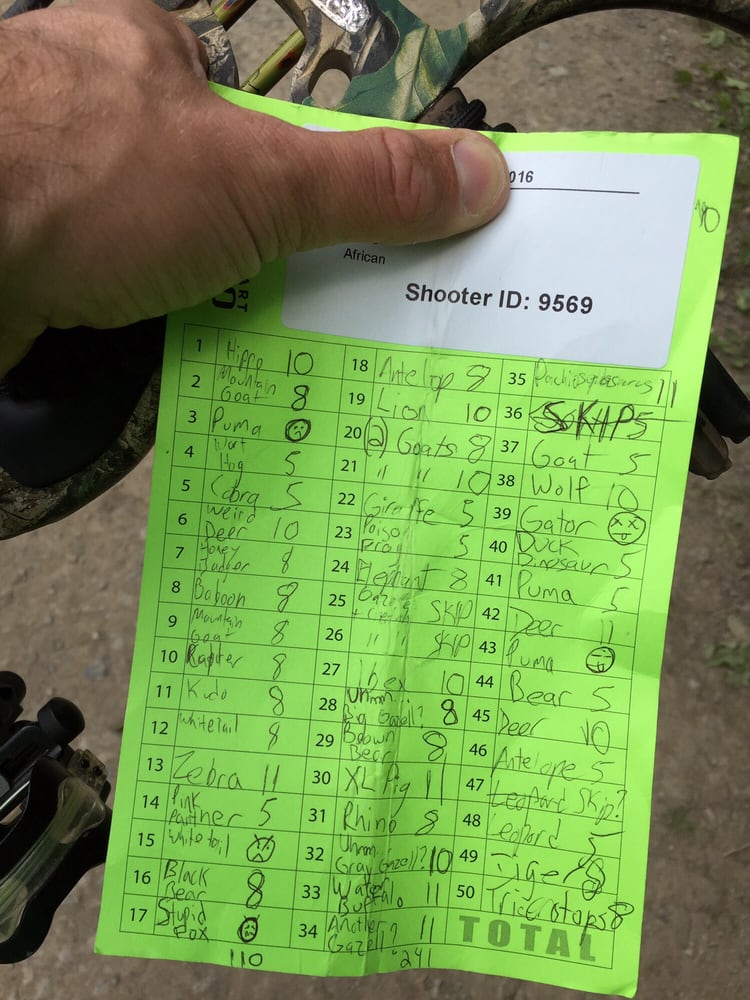 016
10
African
Shooter ID: 9569
ART
1 Hippo 10
2 Mountain Goat 8
3 Puma
4 Wart Hog 5
5 Cobra 5
6 Weird Deer 10
7 Honey 8
8 Baboon 8
9 Mountain Goat 8
10 8
11 Kudo 8
12 Whitetail 8
13 Zebra 11
14 Pink Panther 5
15 Whitetail
16 Black Bear 8
17 Stupid Fox
110
18 Antelop 8
19 Lion 10
20 (2) Goats 8
21 " " 10
22 Giraffe 5
23 Poison Frog 5
24 Elephant 8
25 SKIP
26 " " SKIP
27 Ibex 10
28 Uhmm.. Big Gazell? 8
29 Brown Bear 8
30 XL Pig 11
31 Rhino 8
32 Uhmm.. Gray Gazell? 10
33 Water Buffalo 11
34 Another Gazell? 11
241
35 11
36 SKIP 5
37 Goat 5
38 Wolf 10
39 Gator
40 Duck Dinosaur 5
41 Puma 5
42 Deer 11
43 Puma
44 Bear 5
45 Deer 10
46 Antelope 5
47 Leopard Skip?
48 Leopard 5
49 Tiger 8
50 Tricerotops 8
TOTAL